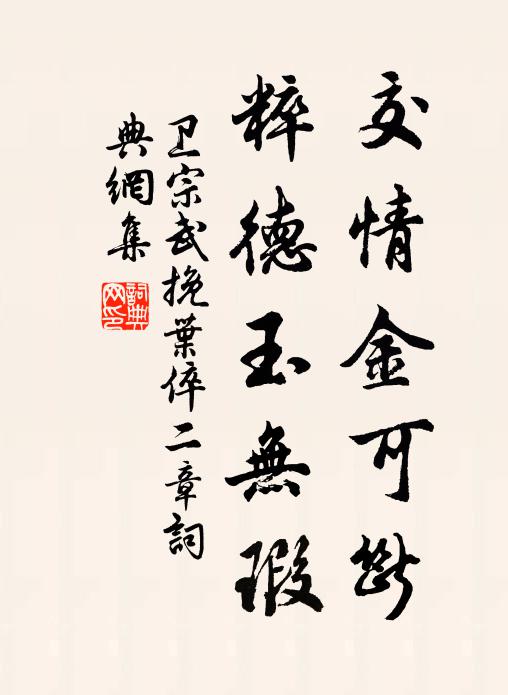 交情金可斷
粹德玉無瑕
卫宗武挽葉倅二章詞
典網集
詞典网印